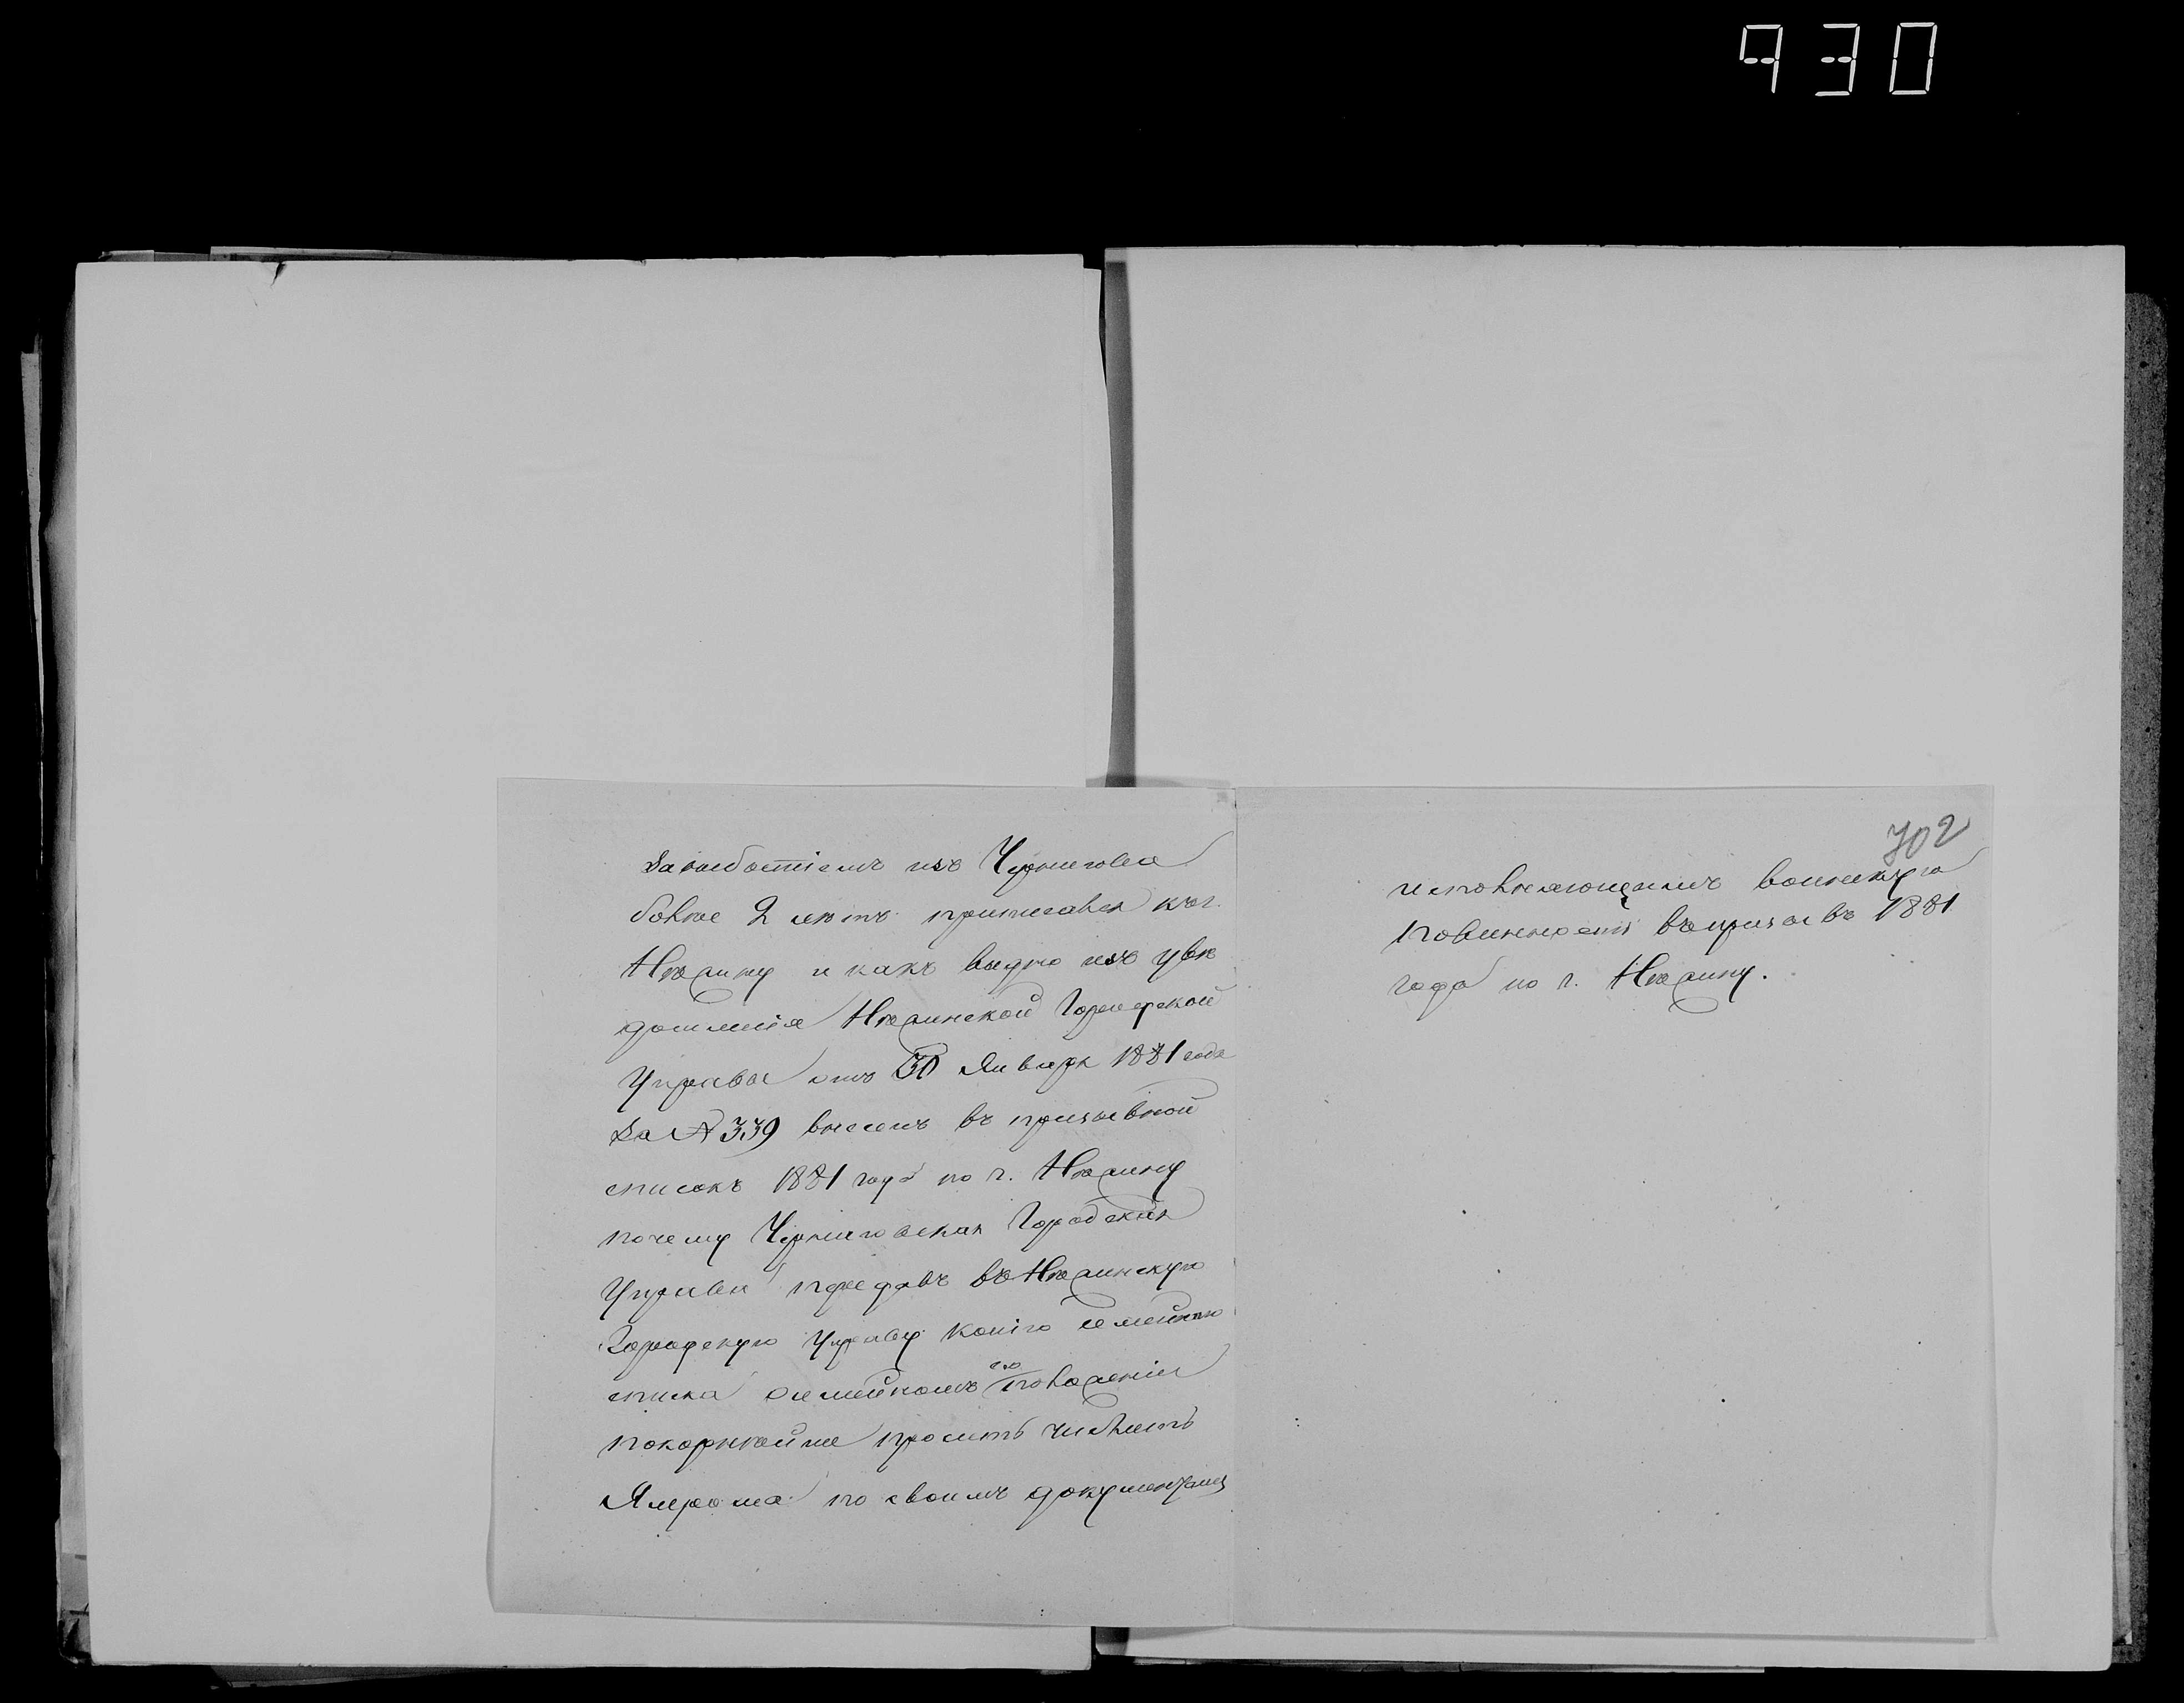 930
за выбытіемъ изъ Чернигова
болѣе 2 лѣтъ приписался къ г.
Нѣжину и какъ видно изъ увѣ
домленія Нѣжинской Городской
Управы отъ 30 Января 1881 года
за № 339 внесенъ въ призывной
списокъ 1881 года по г. Нѣжину
почему Черниговская Городская
Управа передавъ въ Нѣжинскую
Городскую Управу копію семейнаго
списка о семейномъ его положеніи
покорнѣйше проситъ числить
по своимъ документамъ
702
исполняющимъ воинскую
повинность въ призывъ 1881
года по г. Нѣжину.